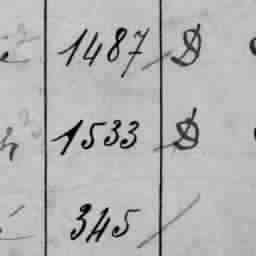 1487 D
1533 D
345